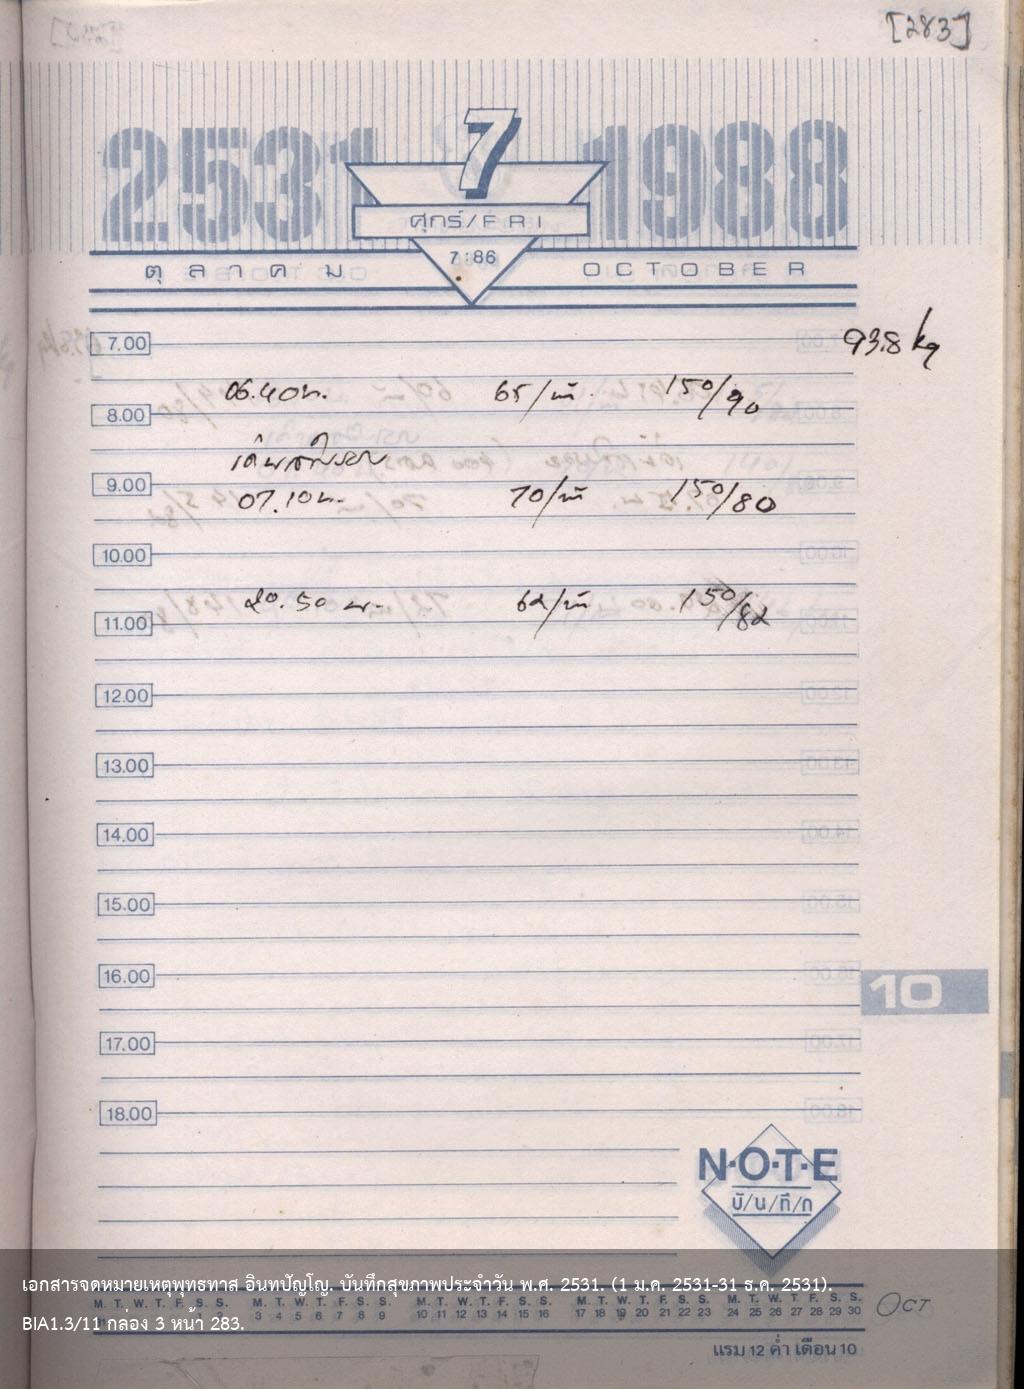 [283]
2531 7 1988
ศุกร์/FRI
7:86
ตุลาคม OCTOBER
7.00 93.8 kg
06.40 น. 65/นาที 150/90
8.00
9.00
07.10 น. 70/นาที 150/80
10.00
20.50 น. 62/นาที 150/82
11.00
12.00
13.00
14.00
15.00
16.00
10
17.00
18.00
N·O·T·E
บั/น/ทึ/ก
เอกสารจดหมายเหตุพุทธทาส อินทปัญโญ. บันทึกสุขภาพประจำวัน พ.ศ. 2531. (1 ม.ค. 2531-31 ธ.ค. 2531).
M. T. W. T. F. S. S. M. T. W. T. F. S. S. M. T. W. T. F. S. S. M. T. W. T. F. S. S. M. T. W. T. F. S. S.
3 4 5 6 7 8 9 10 11 12 13 14 15 16 17 18 19 20 21 22 23 24 25 26 27 28 29 30 OCT
BIA1.3/11 กล่อง 3 หน้า 283.
แรม 12 ค่ำ เดือน 10